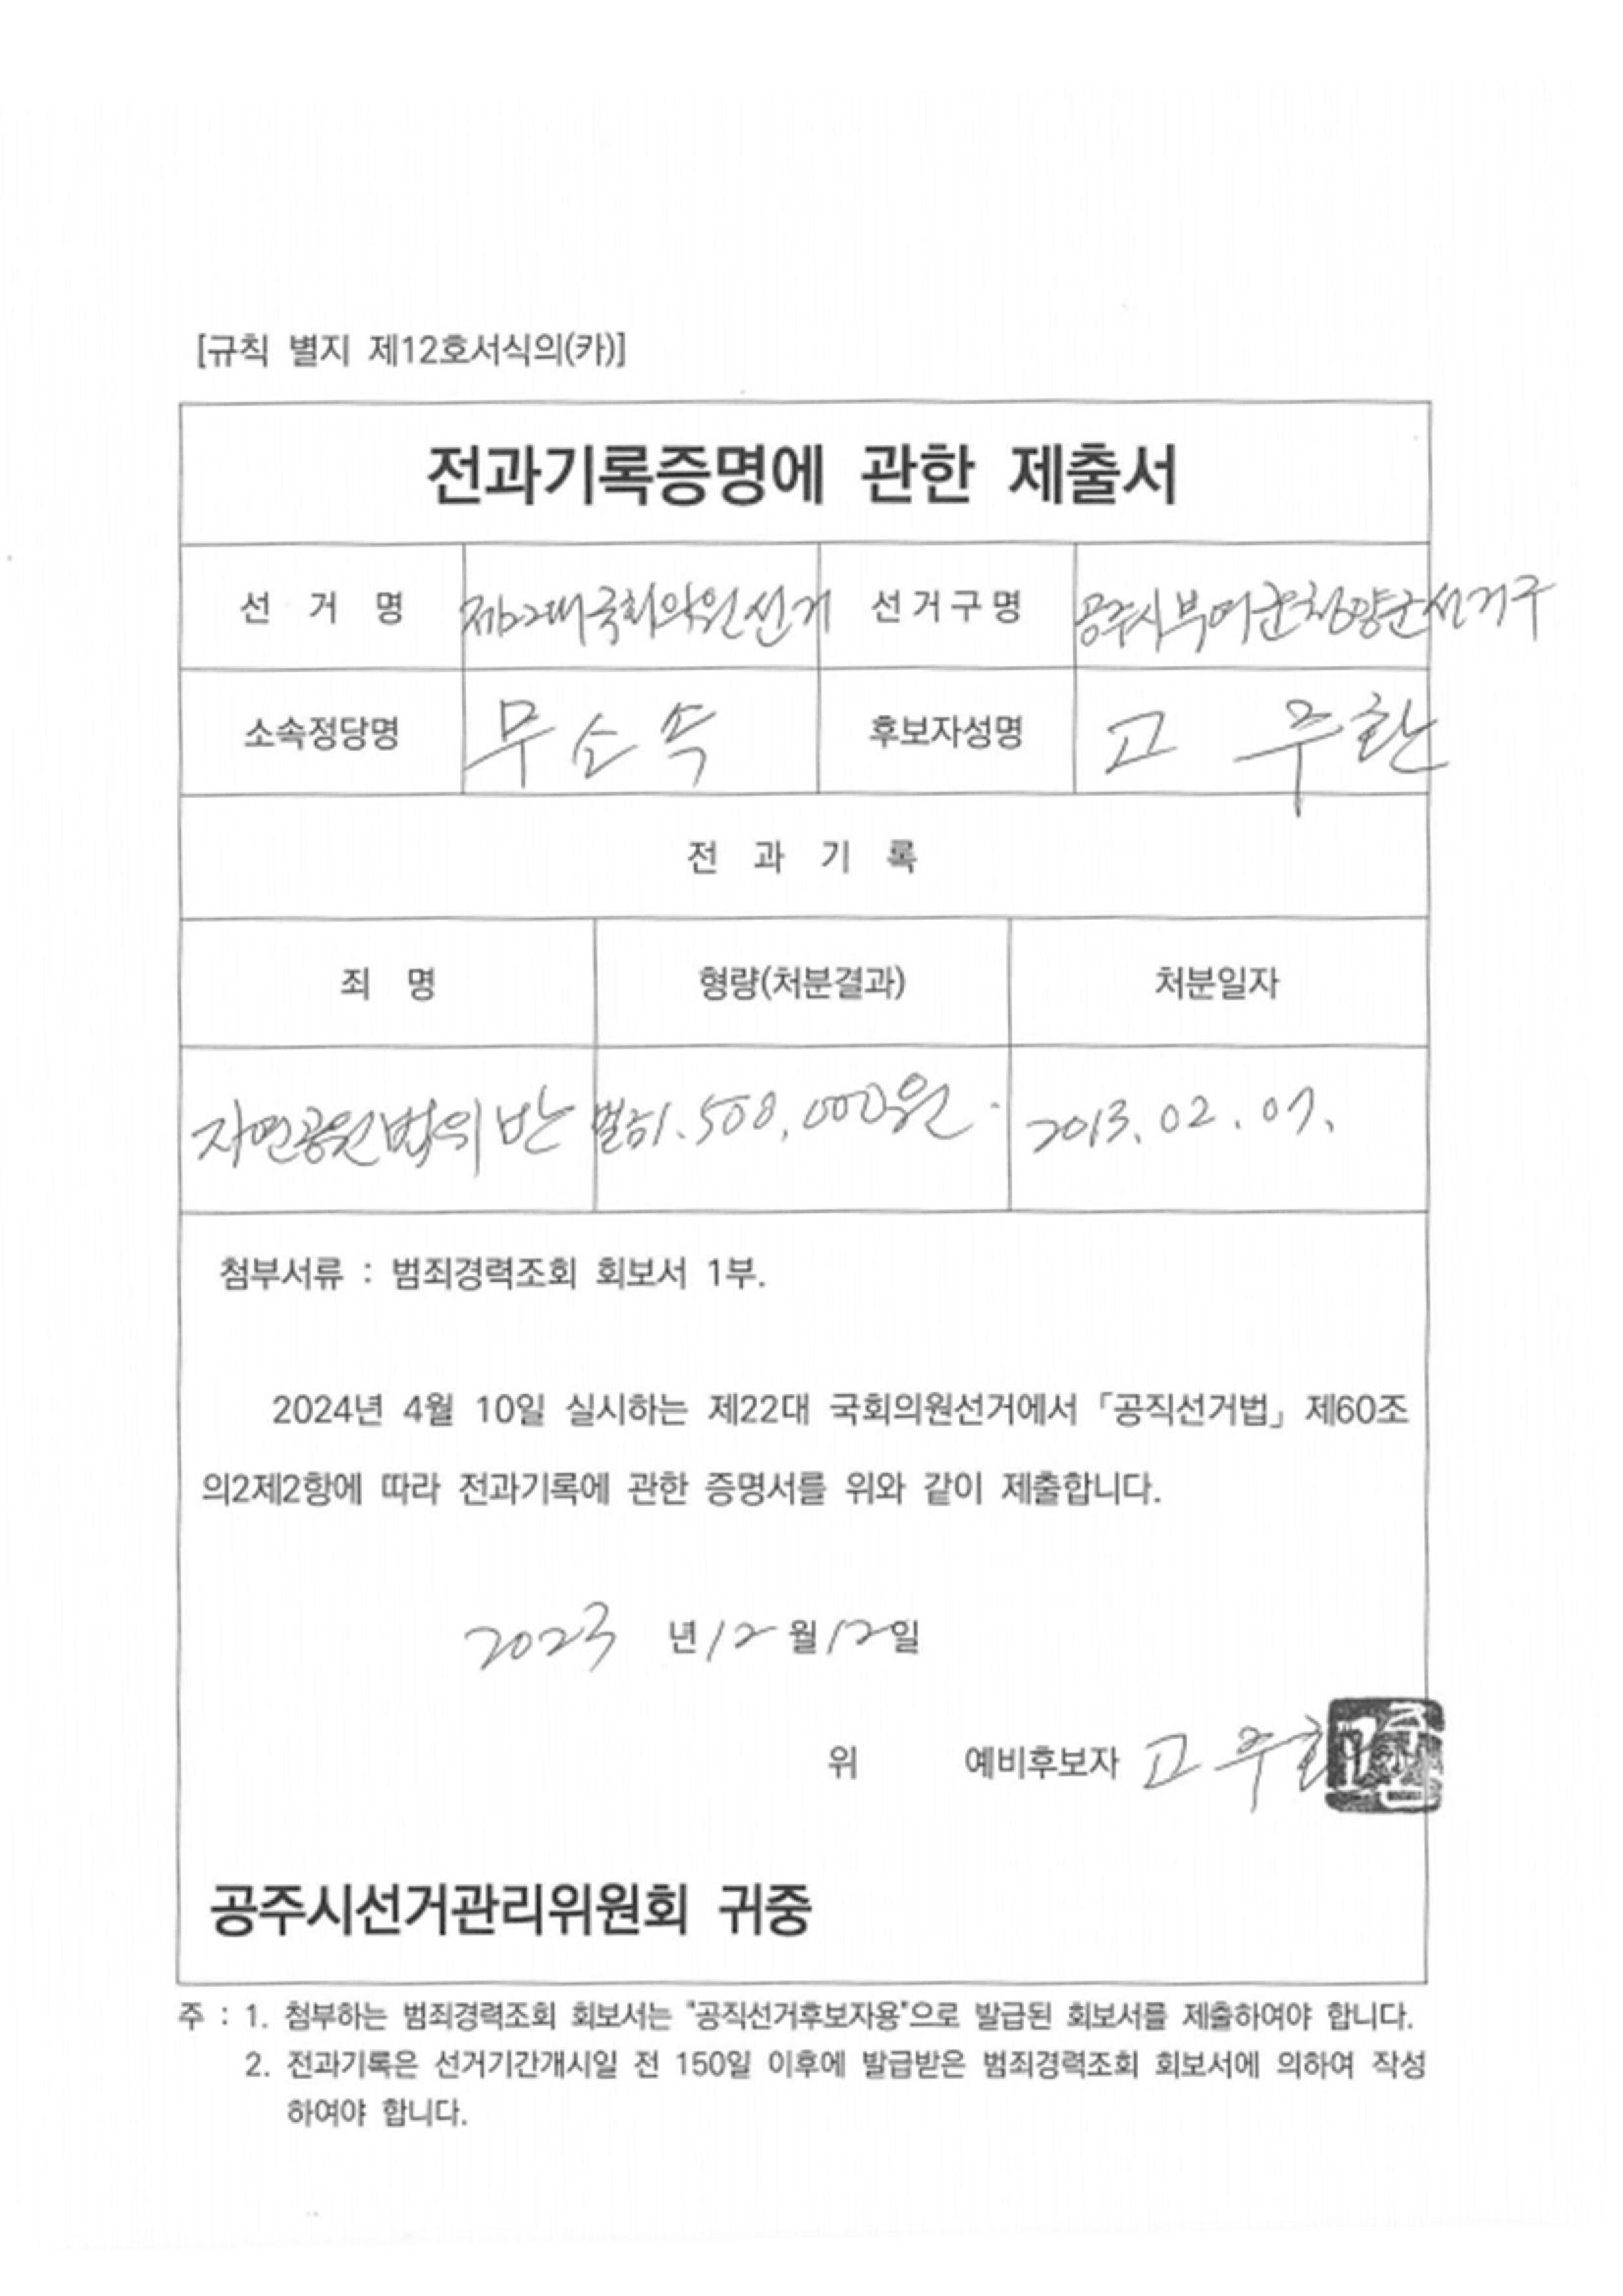 [규칙 별지 제12호서식의(카)]
전과기록증명에 관한 제출서
선 거 명 제22대국회의원선거 선거구명 공주시부여군청양군선거구
소속정당명 무소속 후보자성명 고 주환
전 과 기 록
죄 명 형량(처분결과) 처분일자
자연공원법위반 벌금1.500,000원. 2013.02.07.
첨부서류 : 범죄경력조회 회보서 1부.
2024년 4월 10일 실시하는 제22대 국회의원선거에서 「공직선거법」 제60조
의2제2항에 따라 전과기록에 관한 증명서를 위와 같이 제출합니다.
2023 년 12 월 12 일
위 예비후보자 고주환
공주시선거관리위원회 귀중
주 : 1. 첨부하는 범죄경력조회 회보서는 "공직선거후보자용"으로 발급된 회보서를 제출하여야 합니다.
2. 전과기록은 선거기간개시일 전 150일 이후에 발급받은 범죄경력조회 회보서에 의하여 작성
하여야 합니다.